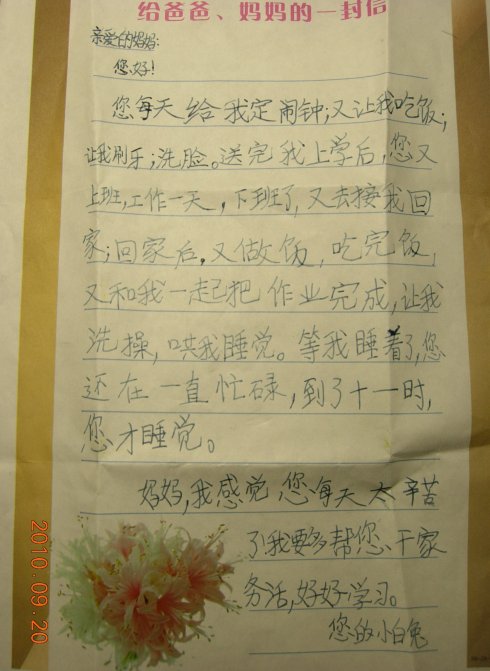 给爸爸、妈妈的一封信
亲爱的妈妈:
您好!
您每天给我定闹钟;又让我吃饭;
让我刷乐;洗脸。送完我上学后,您又
上班,工作一天,下班了,又去接我回
家;回家后,又做饭,吃完饭,
又和我一起把作业完成,让我
洗操,哄我睡觉。等我睡着了,您
还在一直忙碌,到了十一时,
您才睡觉。
妈妈,我感觉您每天太辛苦
了!我要多帮您干家
务活,好好学习。
您的小白兔
2010.09.20